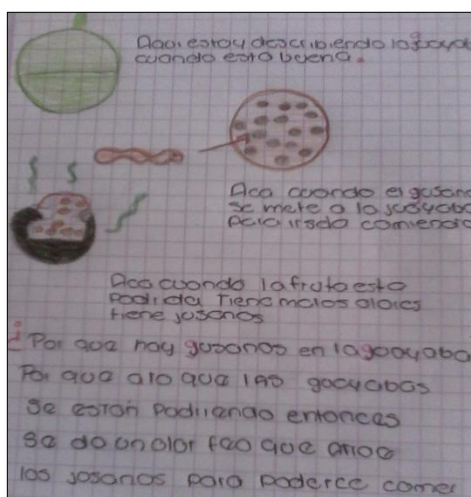 Aqui estoy describiendo la guayaba
cuando esta buena.
Aca cuando el gusano
se mete a la juayaba
para irsela comiendo
Aca cuando la fruta esta
podrida tiene malos olores
tiene jusanos
¿Por que hay gusanos en la guayaba
Por que alo que las guayabas
se estan pudriendo entonces
se da un olor feo que atrae
los josanos para poderce comer